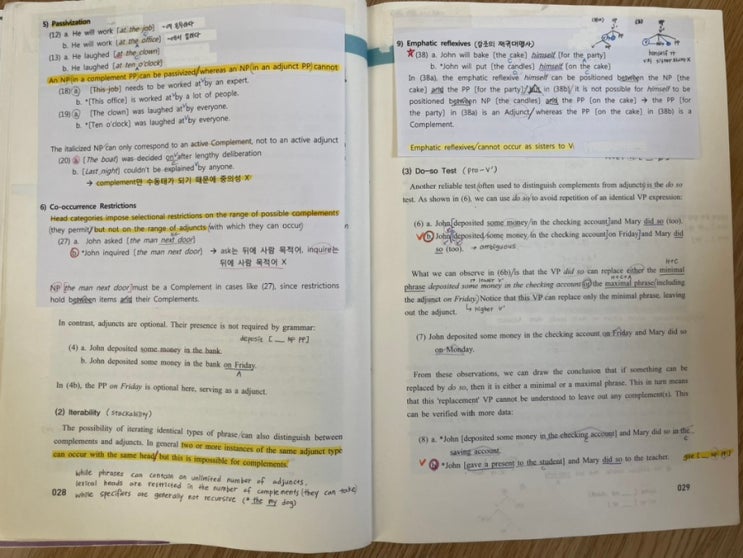 5) Passivization
(12) a. He will work [at the job]
b. He will work [at the office]
(13) a. He laughed [at the clown]
b. He laughed [at ten o'clock]
An NP(in a complement PP)can be passivized/whereas an NP(in an adjunct PP) cannot
(18) ⓐ [This job] needs to be worked at by an expert.
b. *[This office] is worked at by a lot of people.
(19) ⓐ [The clown] was laughed at by everyone.
b. *[Ten o'clock] was laughed at by everyone.
The italicized NP can only correspond to an active Complement, not to an active adjunct
(20) ⓐ [The boat] was decided on after lengthy deliberation
b. [Last night] couldn't be explained by anyone.
→ complement만 수동태가 되기 때문에 중의성 X
6) Co-occurrence Restrictions
Head categories impose selectional restrictions on the range of possible complements
(they permit)/but not on the range of adjuncts(with which they can occur)
(27) a. John asked [the man next door]
ⓑ *John inquired [the man next door] → ask는 뒤에 사람 목적어, inquire는
뒤에 사람 목적어 X
NP [the man next door]must be a Complement in cases like (27), since restrictions
hold between items and their Complements.
In contrast, adjuncts are optional. Their presence is not required by grammar:
deposit [ __ NP PP]
(4) a. John deposited some money in the bank.
b. John deposited some money in the bank on Friday.
A
In (4b), the PP on Friday is optional here, serving as a adjunct.
(2) Iterability (stackability)
The possibility of iterating identical types of phrase/can also distinguish between
complements and adjuncts. In general two or more instances of the same adjunct type
can occur with the same head/but this is impossible for complements.
while phrases can contain an unlimited number of adjuncts,
lexical heads are restricted in the number of complements (they can take)
while specifiers are generally not recursive (* the my dog)
028
9) Emphatic reflexives (강조의 재귀대명사)
★(38) a. John will bake [the cake] himself [for the party]
b. *John will put [the candles] himself [on the cake]
In (38a), the emphatic reflexive himself can be positioned between the NP [the
cake] and the PP [for the party]/ in (38b) it is not possible for himself to be
positioned between NP [the candles] and the PP [on the cake] → the PP [for
the party] in (38a) is an Adjunct/whereas the PP [on the cake] in (38b) is a
Complement.
Emphatic reflexives/cannot occur as sisters to V.
(3) Do–so Test (Pro-V')
Another reliable test/often used to distinguish complements from adjuncts/is the do so
test. As shown in (6), we can use do so/to avoid repetition of an identical VP expression:
(6) a. John[deposited some money/in the checking account]and Mary did so (too).
ⓑ John[deposited some money in the checking account]on Friday]and Mary did
so (too). → ambiguous
What we can observe in (6b)/is that the VP did so can replace either the minimal
phrase deposited some money in the checking account or the maximal phrase/including
the adjunct on Friday.)Notice that this VP can replace only the minimal phrase, leaving
out the adjunct. ↳ higher V'
(7) John deposited some money in the checking account on Friday and Mary did so
on Monday.
From these observations, we can draw the conclusion that if something can be
replaced by do so, then it is either a minimal or a maximal phrase. This in turn means
that this 'replacement' VP cannot be understood to leave out any complement(s). This
can be verified with more data:
(8) a. *John [deposited some money in the checking account] and Mary did so in the
saving account.
ⓑ *John [gave a present to the student] and Mary did so to the teacher. give [ __ NP PP]
029